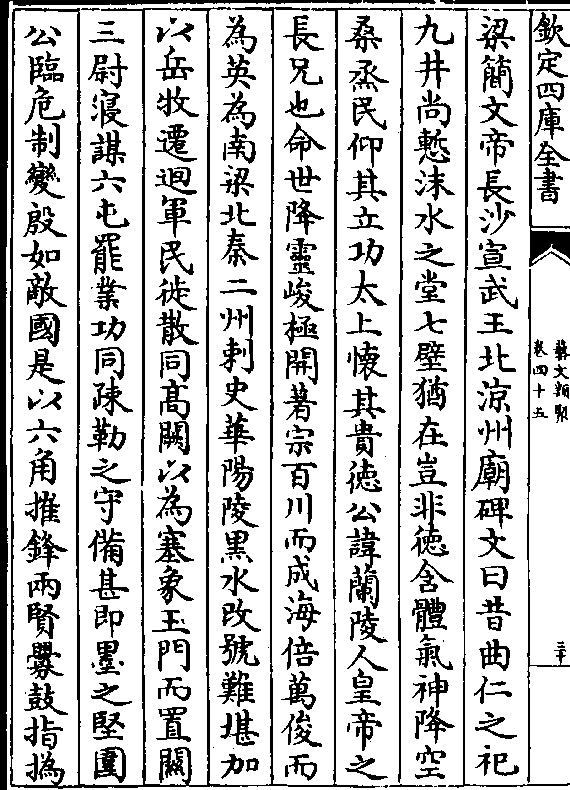 欽定四庫全書
藝文類聚
卷四十五
二十
梁簡文帝長沙宣武王北涼州廟碑文曰昔曲仁之祀
九井尚慙沫水之堂七壁猶在豈非徳含體氣神降空
桑烝民仰其立功太上懐其貴徳公諱蘭陵人皇帝之
長兄也命世降靈峻極開著宗百川而成海倍萬俊而
為英為南梁北秦二州刺史華陽陵黒水改號難堪加
以岳牧遷迴軍民徙散同髙闕以為塞象玉門而置關
三尉寝謀六屯罷業功同疎勒之守備甚即墨之堅圍
公臨危制變殷如敵國是以六角摧鋒兩賢釁鼓指撝